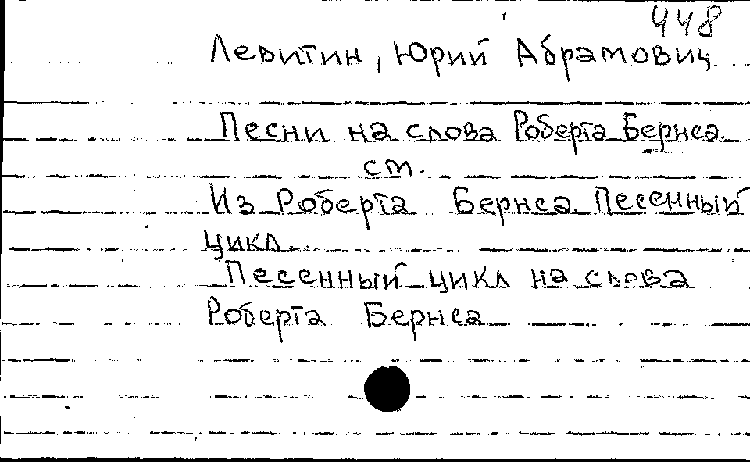 448
Левитин, Юрий Абрамович
Песни на слова Роберта Бернса
см.
Из Роберта Бернса Песенный
цикл
Песенный цикл на слова
Роберта Бернса